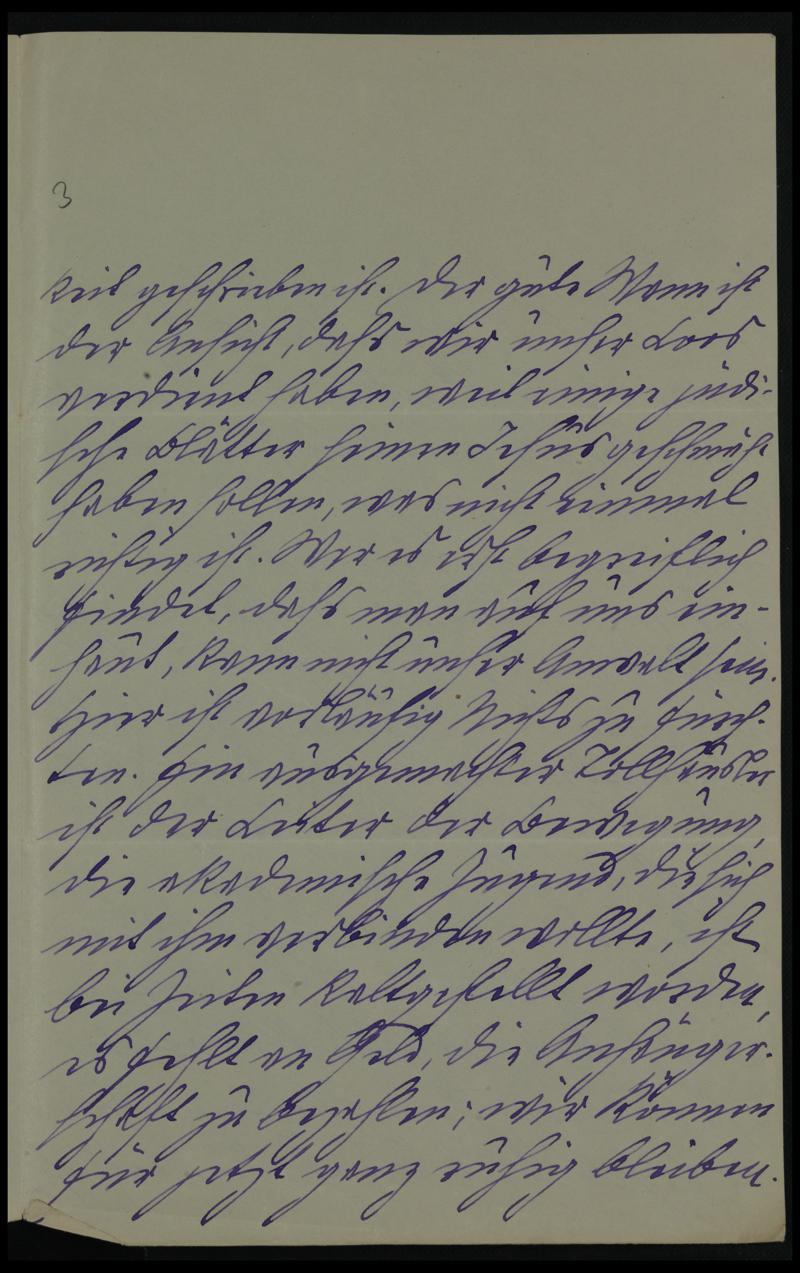 3
keit geschrieben ist. Der gute Mann ist
der Ansicht, dass wir unser Loos
verdient haben, weil einige jüdi-
sche Blätter seinen Jesus geschmäht
haben sollen, was nicht einmal
richtig ist. Wer es erst begreiflich
findet, dass man auf uns ein-
haut, kann nicht unser Anwalt sein.
Hier ist vorläufig Nichts zu fürch-
ten. Ein ausgemachter Tollhäusler
ist der Leiter der Bewegung,
die akademische Jugend, die sich
mit ihm verbinden wollte, ist
bei Zeiten kaltgestellt worden,
es fehlt an Geld, die Anhänger-
schaft zu bezahlen; wir können
für jetzt ganz ruhig bleiben.